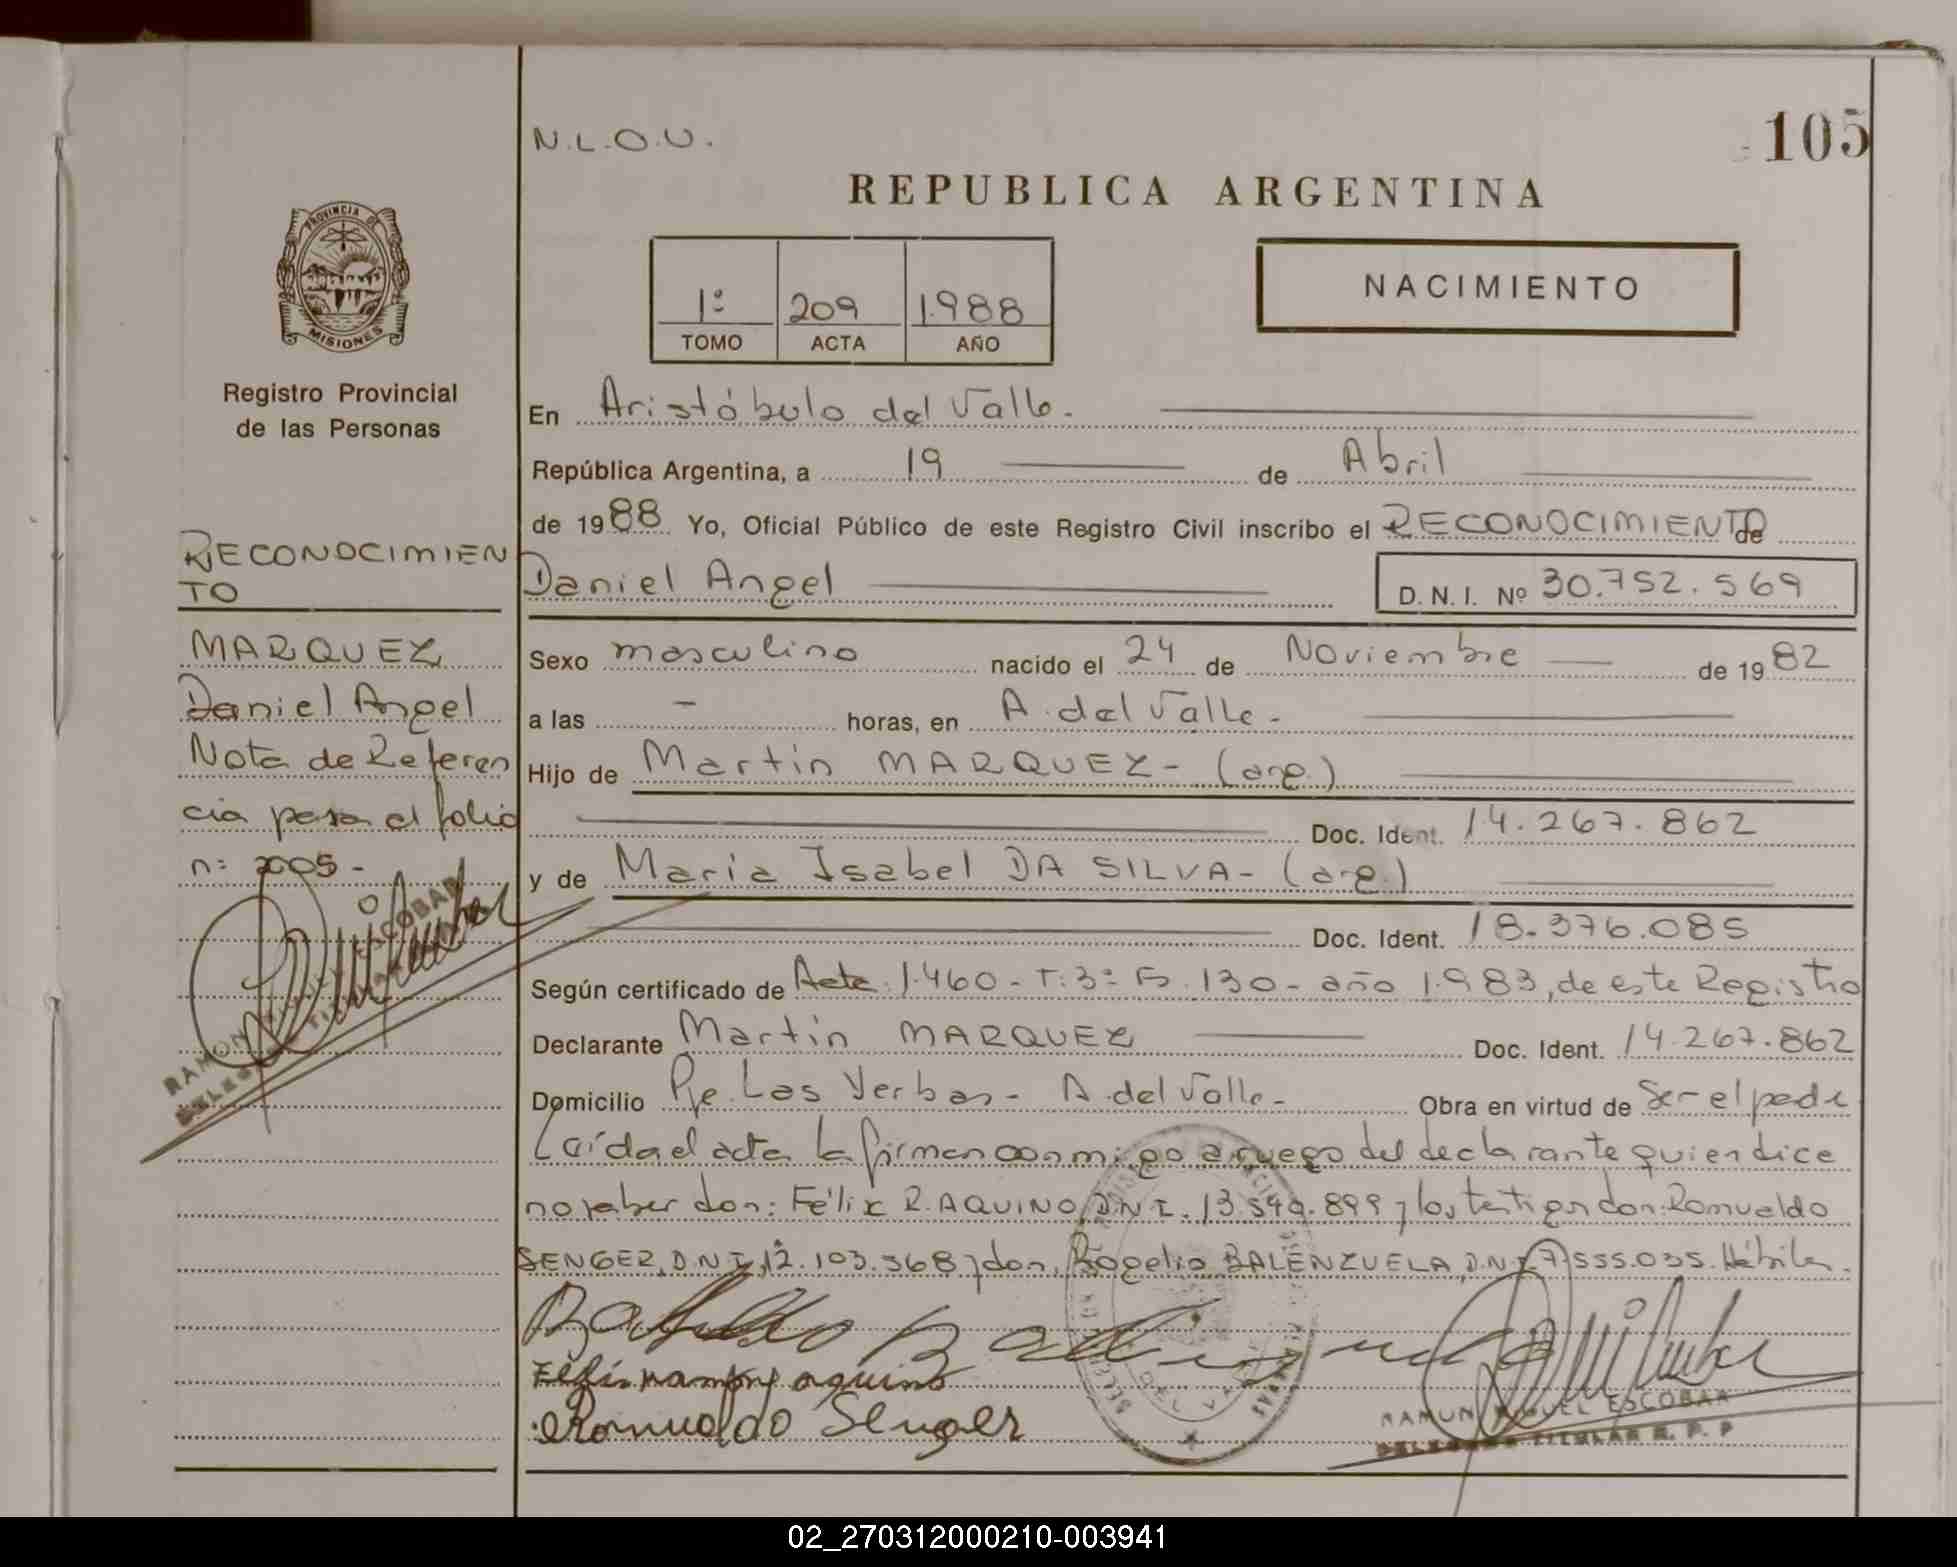 N.L.O.U.
105
REPUBLICA ARGENTINA
PROVINCIA DE
MISIONES
NACIMIENTO
1º 209 1.988
TOMO ACTA AÑO
Registro Provincial
de las Personas
En Aristóbulo del Valle.
República Argentina, a 19 de Abril
de 1988 Yo, Oficial Público de este Registro Civil inscribo el RECONOCIMIENTO de
Daniel Angel D.N.I. Nº 30.752.569
RECONOCIMIEN
TO
MARQUEZ
Daniel Angel
Nota de Referen
cia pasa al folio
n: 2005 -
Sexo masculino nacido el 24 de Noviembre de 1982
a las - horas, en A. del Valle -
Hijo de Martin MARQUEZ - (arg.)
Doc. Ident. 14.267.862
y de Maria Isabel DA SILVA - (arg.)
Doc. Ident. 18.376.085
Según certificado de Acta 1.460 - T: 3º Fº 130 - año 1.983, de este Registro
Declarante Martin MARQUEZ Doc. Ident. 14.267.862
Domicilio Pje. Las Yerbas - A. del Valle - Obra en virtud de Ser el padre
Leída el acta la firman conmigo a ruego del declarante quien dice
no saber don: Félix R. AQUINO, D.N.I. 13.549.899 y los testigos don: Romualdo
SENGER, D.N.I. 12.103.368 y don, Rogelio BALENZUELA, D.N.I. 7.555.035. Hábiles.
aquino
Romualdo Senger
RAMON MIGUEL ESCOBAR
DELEGADO TITULAR R. P. P
02_270312000210-003941